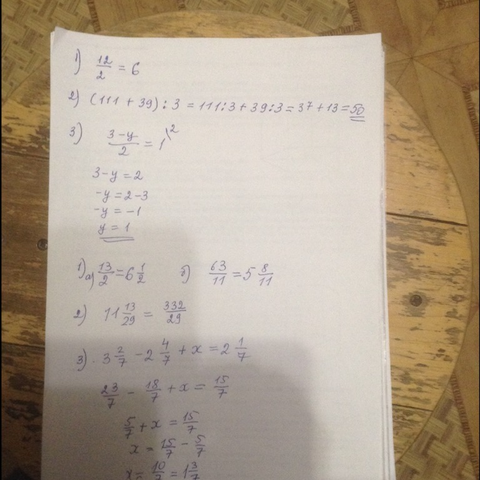 1) 12/2 = 6
2) (111 + 39) : 3 = 111:3 + 39:3 = 37 + 13 = 50
3) (3-y)/2 = 1 \2
3 - y = 2
-y = 2-3
-y = -1
y = 1
1) а) 13/2 = 6 1/2 б) 63/11 = 5 8/11
2) 11 13/29 = 332/29
3) 3 2/7 - 2 4/7 + x = 2 1/7
23/7 - 18/7 + x = 15/7
5/7 + x = 15/7
x = 15/7 - 5/7
x = 10/7 = 1 3/7